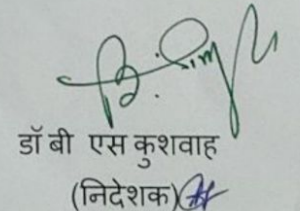 डॉ बी एस कुशवाह
(निदेशक)